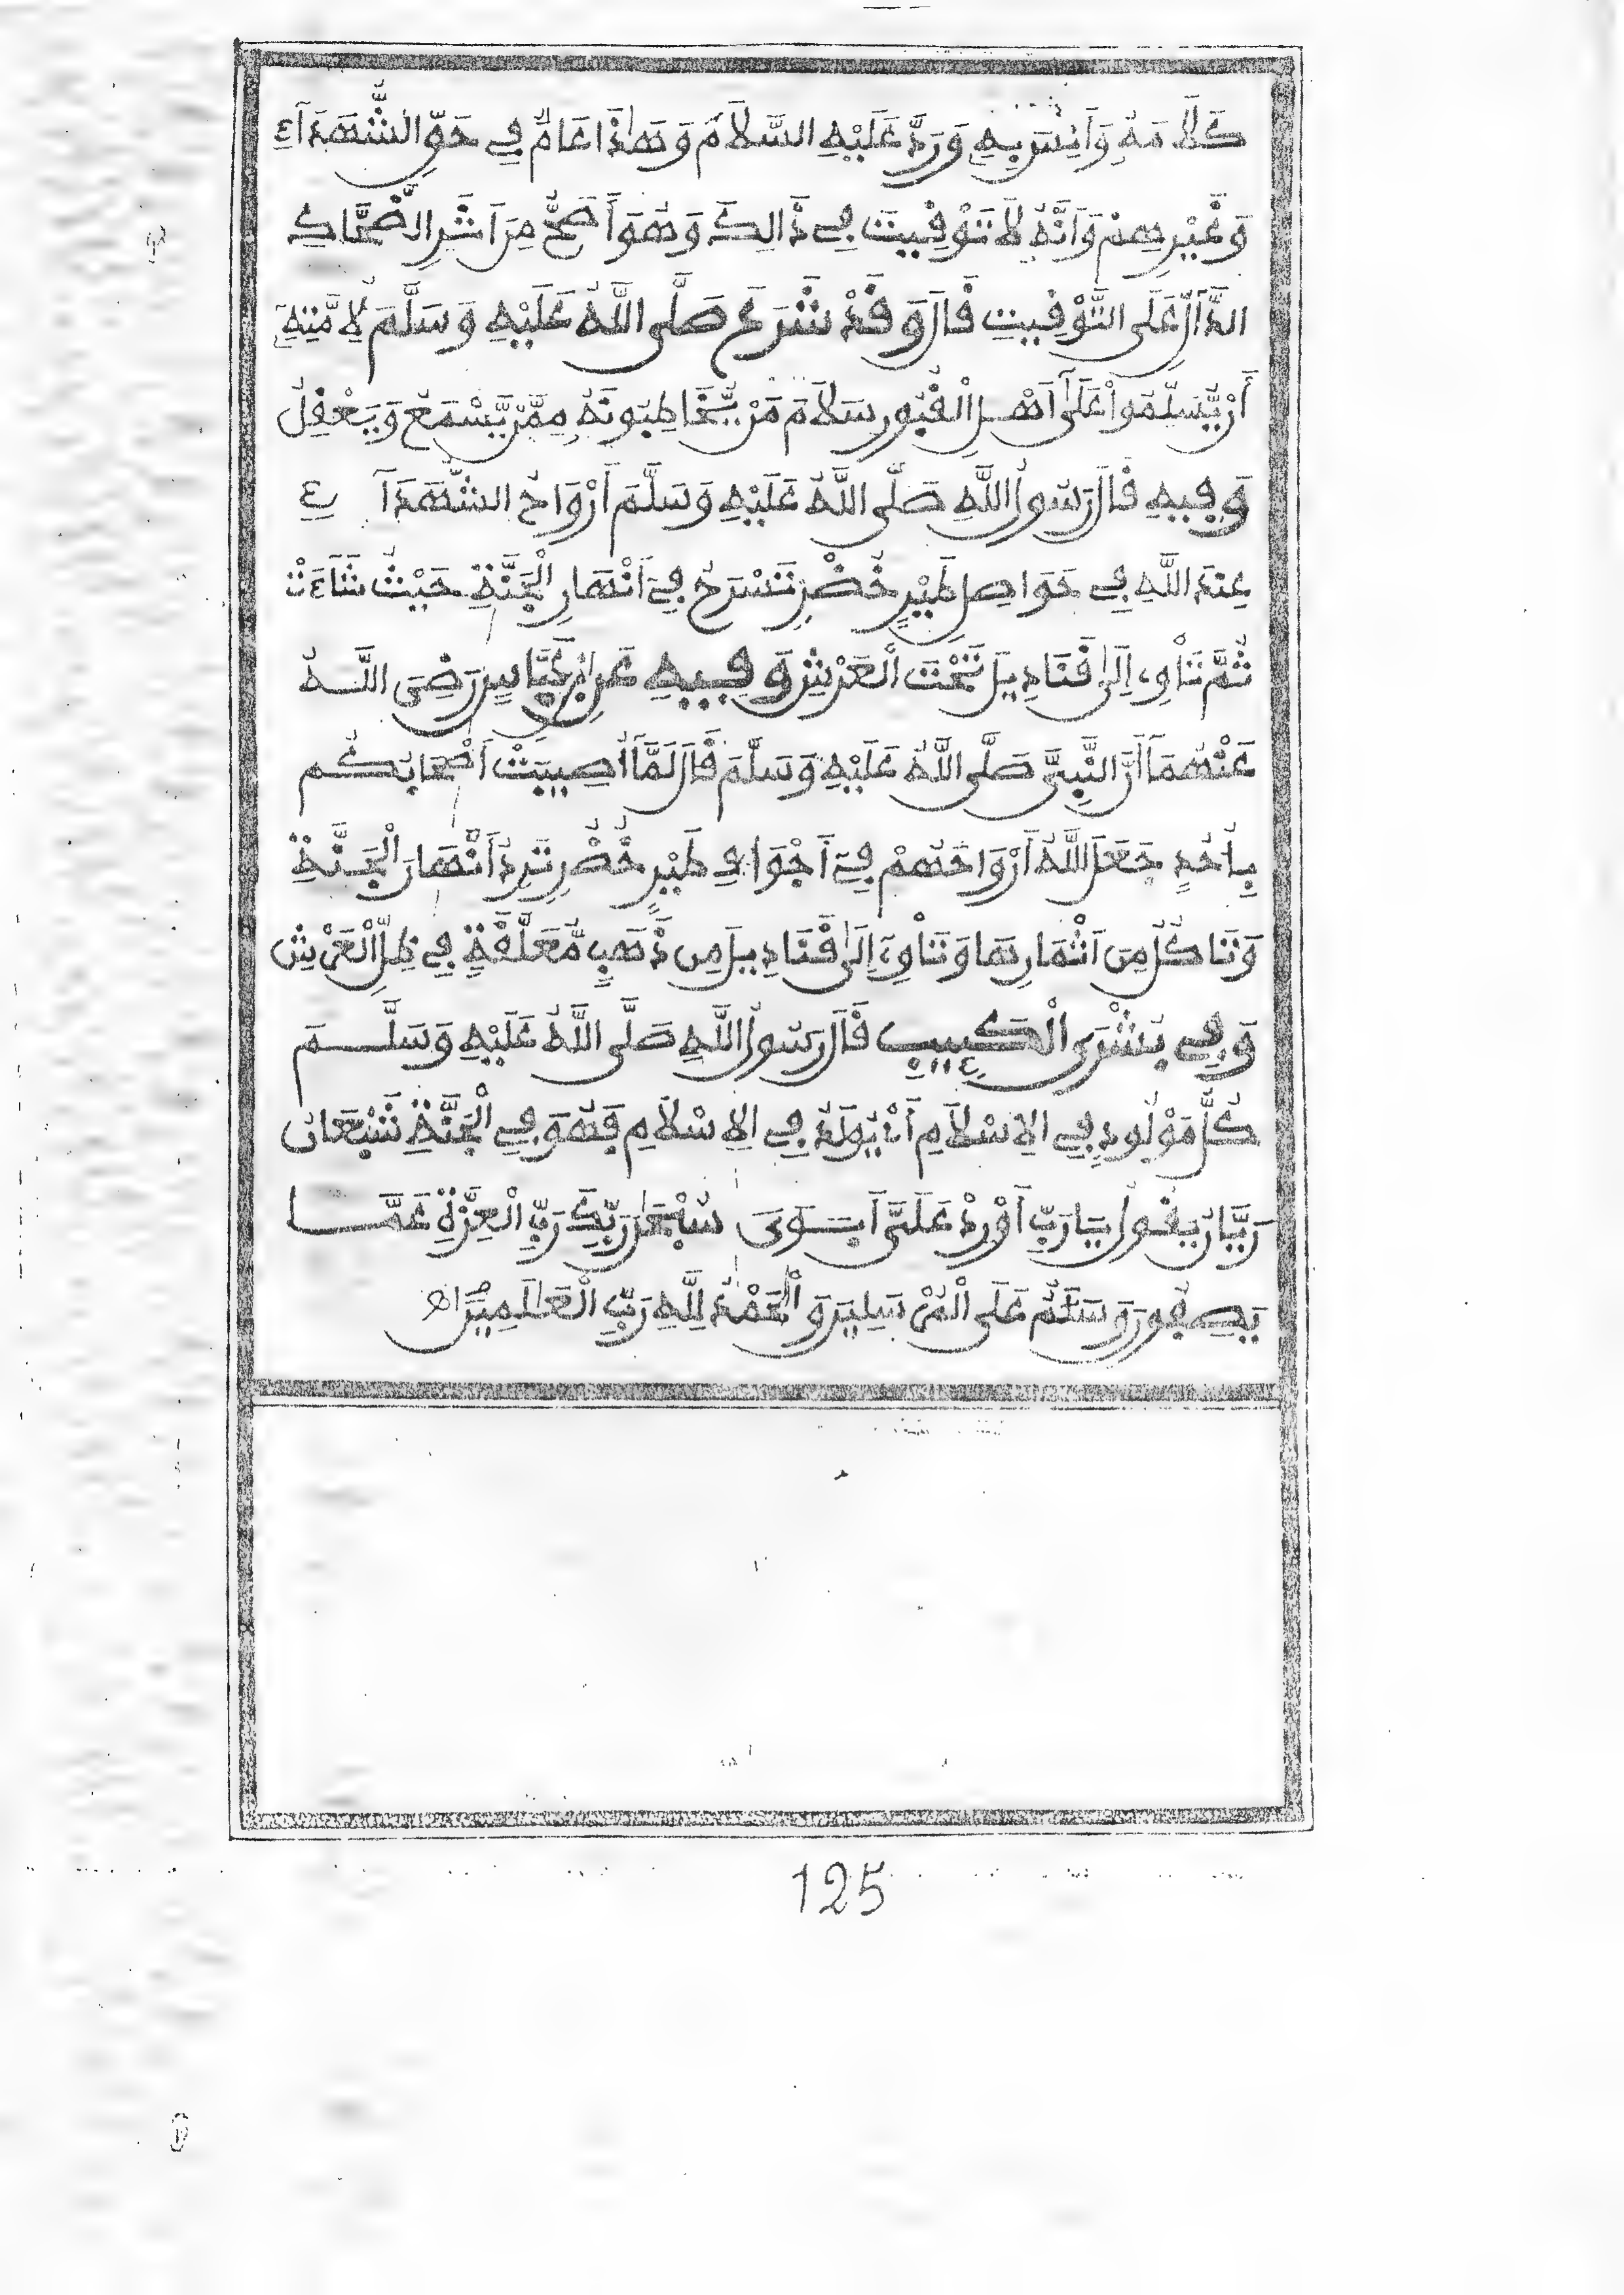 كَلَامَهُ وَأَنِسَ بِهِ وَرَدَّ عَلَيْهِ السَّلَامَ وَهَٰذَا عَامٌّ فِي حَقِّ الشُّهَدَآءِ
وَغَيْرِهِمْ وَأَنَّهُ لَا تَوْقِيتَ فِي ذَالِكَ وَهُوَ أَصَحُّ مِنَ اَثَرِ الضَّحَّاكِ
الدَّآلِّ عَلَى التَّوْقِيتِ قَالَ وَقَدْ شَرَعَ صَلَّى اللَّهُ عَلَيْهِ وَسَلَّمَ لِأُمَّتِهِ
أَنْ يُّسَلِّمُواْ عَلَىٰ أَهْلِ الْقُبُورِ سَلَامَ مَنْ يُّخَاطِبُونَهُ مِمَّنْ يَّسْمَعُ وَيَعْقِلُ
وَفِيهِ قَالَ رَسُولُ اللَّهِ صَلَّى اللَّهُ عَلَيْهِ وَسَلَّمَ أَرْوَاحُ الشُّهَدَآءِ
عِنْدَ اللَّهِ فِي حَوَاصِلِ طَيْرٍ خُضْرٍ تَسْرَحُ فِي أَنْهَارِ الْجَنَّةِ حَيْثُ شَآءَتْ
ثُمَّ تَأْوِي إِلَىٰ قَنَادِيلَ تَحْتَ الْعَرْشِ وَفِيهِ عَنِ ابْنِ عَبَّاسٍ رَضِيَ اللَّهُ
عَنْهُمَا أَنَّ النَّبِيَّ صَلَّى اللَّهُ عَلَيْهِ وَسَلَّمَ قَالَ لَمَّا أُصِيبَتْ أَصْحَابُكُم
بِأُحُدٍ جَعَلَ اللَّهُ أَرْوَاحَهُمْ فِي أَجْوَافِ طَيْرٍ خُضْرٍ تَرِدُ أَنْهَارَ الْجَنَّةِ
وَتَاكُلُ مِنَ اَثْمَارِهَا وَتَأْوِي إِلَىٰ قَنَادِيلَ مِن ذَهَبٍ مُّعَلَّقَةٍ فِي ظِلِّ الْعَرْشِ
وَفِي بُشْرَى الْكَئِيبِ قَالَ رَسُولُ اللَّهِ صَلَّى اللَّهُ عَلَيْهِ وَسَلَّمَ
كُلُّ مَوْلُودٍ فِي الِاسْلَامِ يُولَدُ فِي الِاسْلَامِ فَهُوَ فِي الْجَنَّةِ شَبْعَانُ
رَيَّانُ يَقُولُ يَا رَبِّ أَوْرِدْ عَلَيَّ أَبَوَيَّ سُبْحَٰنَ رَبِّكَ رَبِّ الْعِزَّةِ عَمَّا
يَصِفُونَ وَسَلَٰمٌ عَلَى الْمُرْسَلِينَ وَالْحَمْدُ لِلَّهِ رَبِّ الْعَالَمِينَ اهـ
125